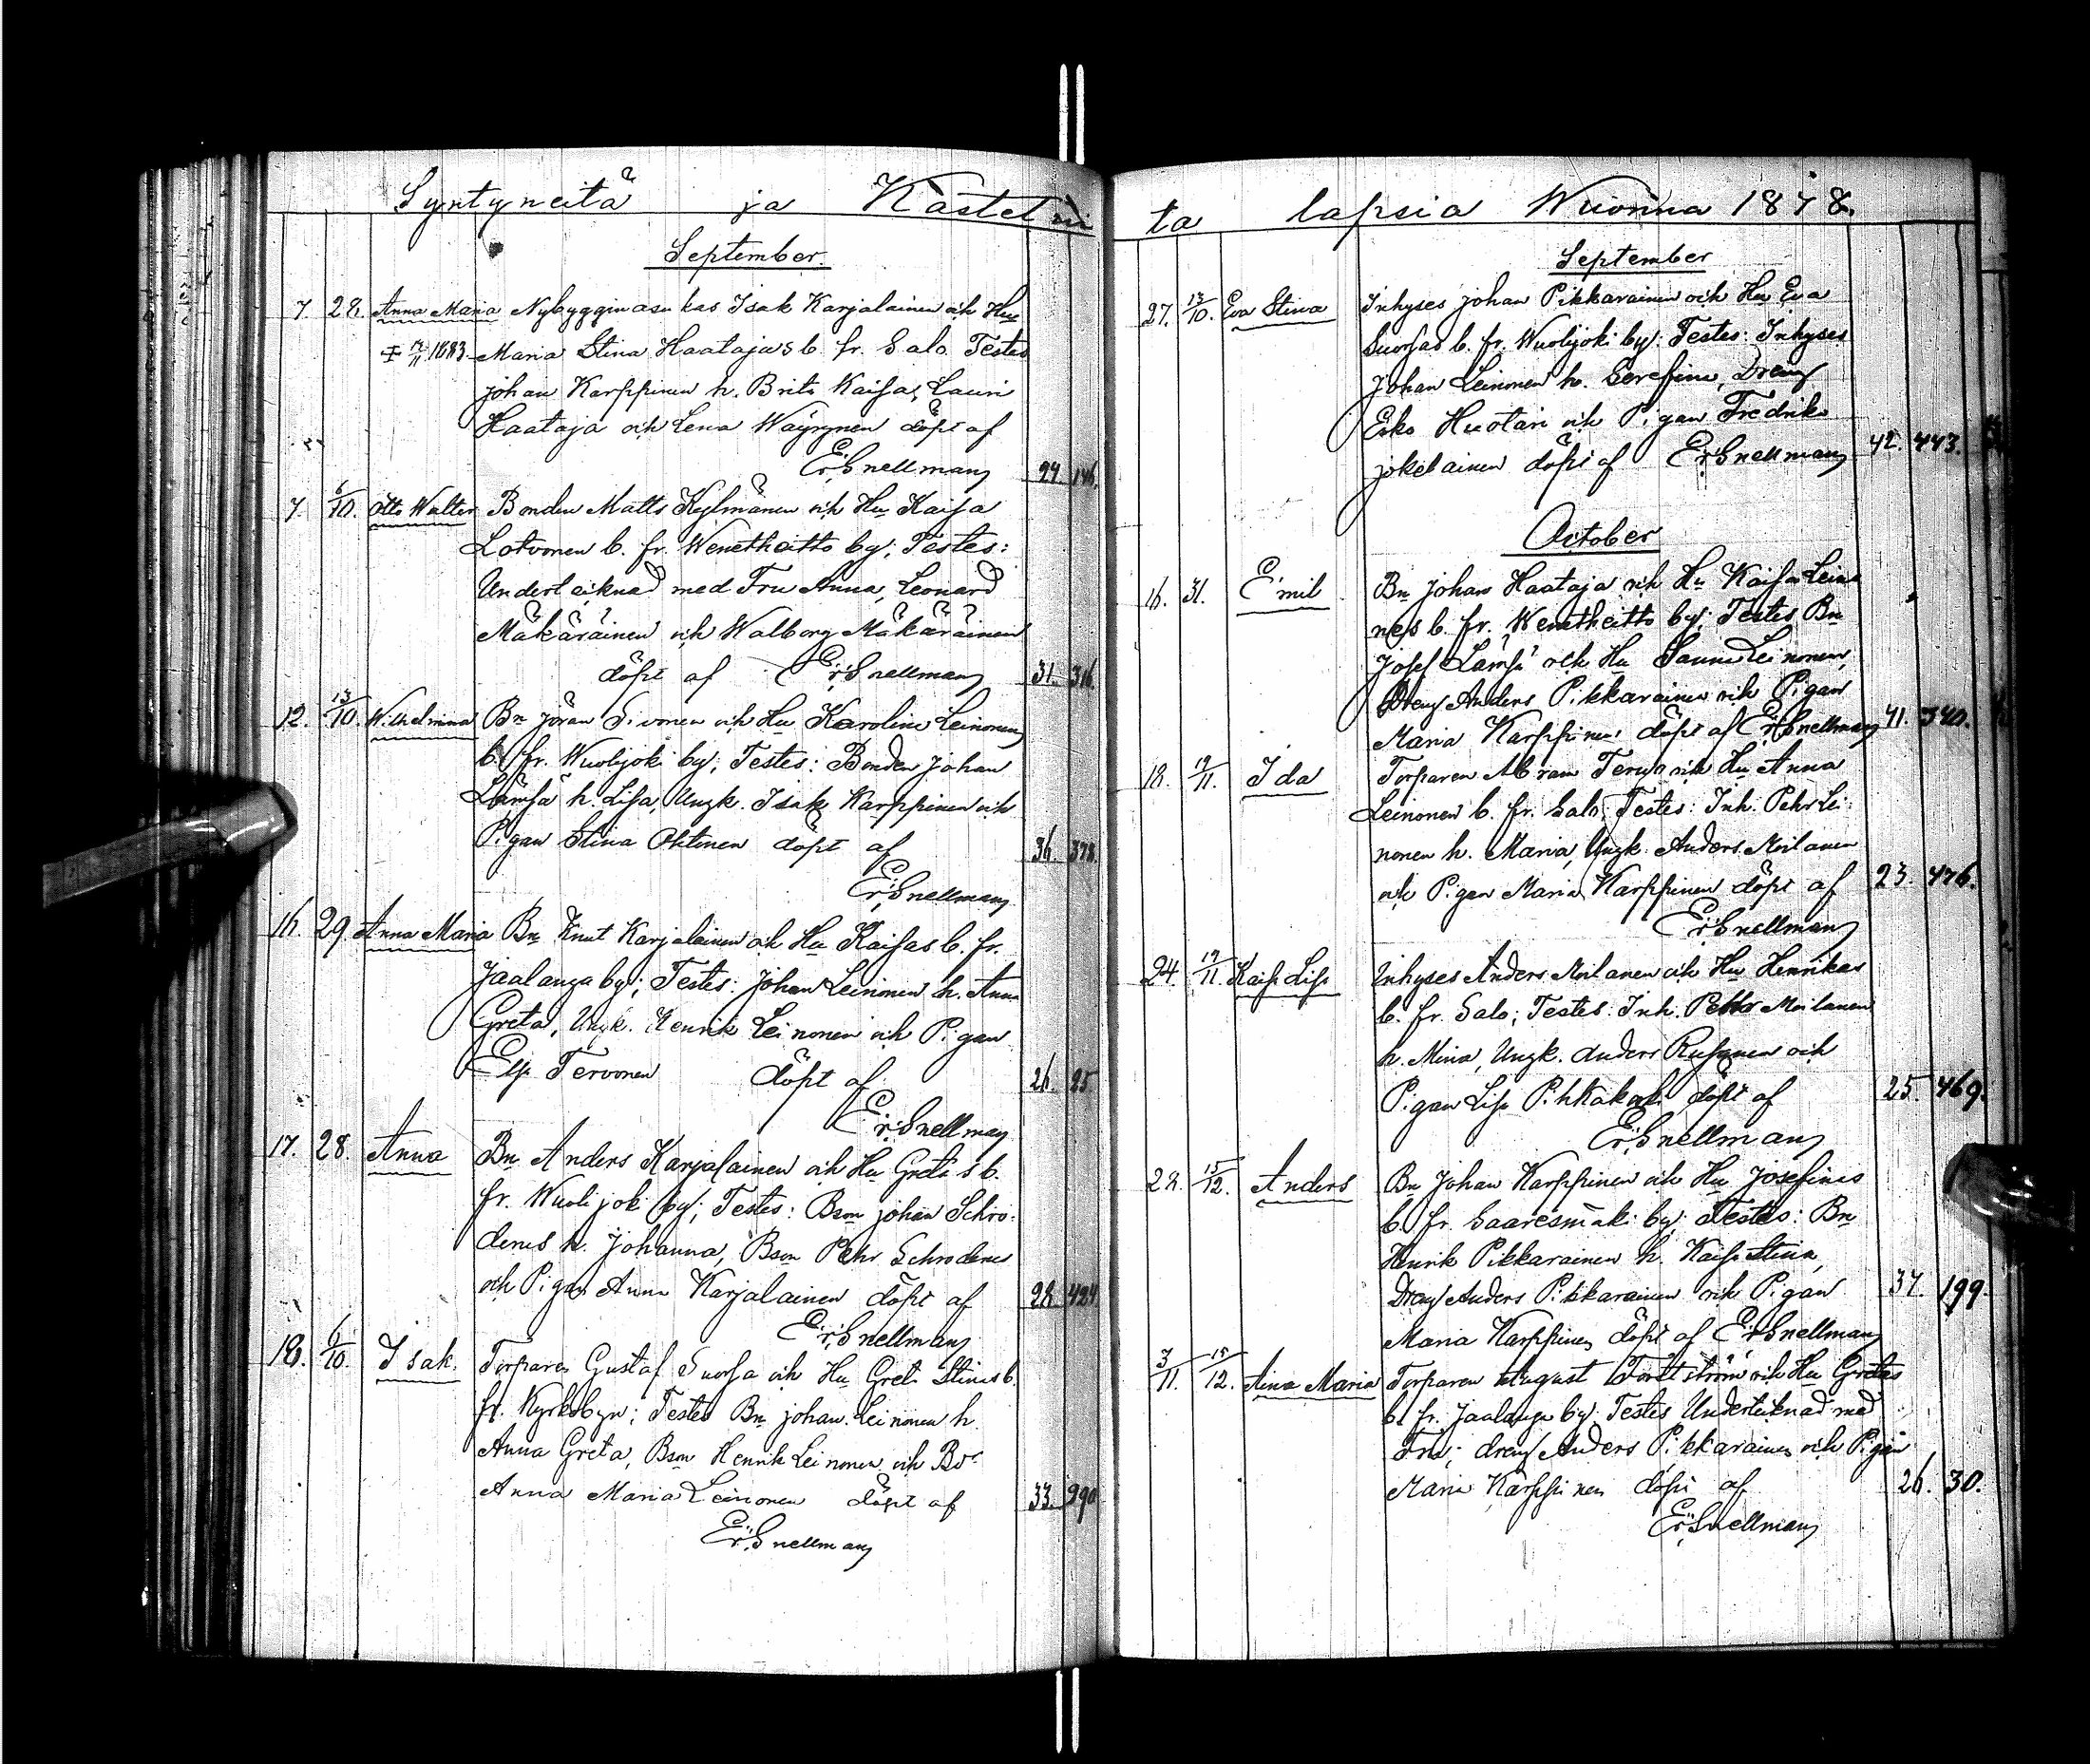 Syntyneitä ja Kastettui
September.
7. 28. Anna Maria Nybygginasukas Isak Karjalainen och Hu
‡ 1883. Maria Stina Haatajas b. fr. Salo Testes
Johan Karppinen h. Brita Kaisa, Lauri
Haataja och Lena Wäyrynen döpt af
ErSnellman 24 146.
7. 6/10. Otto Walter Bonden Matts Kylmänen och Hu Kaisa
Lotvonen b. fr. Wenetheitto by; Testes:
Undertecknad med Fru Anna, Leonard
Mäkäräinen och Walborg Mäkäräinen
döpt af ErSnellman 31. 316
12. 13/10. Wilhelmina Bn Jöran Sivonen och Hu Karolina Leinonen
b. fr. Wuolijoki by; Testes: Bonden Johan
Lämsä h. Lisa, Ungk. Isak Karppinen och
Pigan Stina Ohtonen döpt af 36. 378.
ErSnellman
16. 29. Anna Maria Bn Knut Karjalainen och Hu Kaisas b. fr.
Jaalanga by; Testes: Johan Leinonen h. Anna
Greta, Ungk. Henrik Leinonen och Pigan
Elsa Tervonen döpt af 26. 25
ErSnellman
17. 28. Anna Bn Anders Karjalainen och Hu Gretas b.
fr. Wuolijoki by; Testes: Bson Johan Schro-
derus h. Johanna, Bson Pehr Schroderus
och Pigan Anna Karjalainen döpt af 28. 424
ErSnellman
18. 6/10. Isak. Torparen Gustaf Suorsa och Hu Greta Stinas b.
fr. Kyrkobyn; Testes Bn Johan Leinonen h.
Anna Greta, Bson Henrik Leinonen och Bdr
Anna Maria Leinonen döpt af 33. 290
ErSnellman
ta lapsia Wuonna 1878.
September
27. 13/10. Eva Stina Inhyses Johan Pikkarainen och Hu Eva
Suorsas b. fr. Wuolijoki by: Testes: Inhyses
Johan Leinonen h. Serefina, Dreng
Esko Huotari och Pigan Fredrika
Jokelainen döpt af ErSnellman 42. 443.
October
16. 31. Emil Bn Johan Haataja och Hu Kaisa Leino
nens b. fr. Wenetheitto by; Testes Bn
Josef Lämsä och Hu Sanna Leinonen,
Dreng Anders Pikkarainen och Pigan
Maria Karppinen döpt af ErSnellman 41. 340.
18. 19/11. Ida Torparen Abram Tervo och Hu Anna
Leinonen b. fr. Salo; Testes: Inh. Pehr Lei-
nonen h. Maria, Ungk. Anders Moilanen
och Pigan Maria Karppinen döpt af 23. 476.
ErSnellman
24. 19/11. Kaisa Lisa Inhyses Anders Moilanen och Hu Henrikas
b. fr. Salo; Testes: Inh. Petter Moilanen
h. Mina, Ungk. Anders Rusanen och
Pigan Lisa Pihkakoski döpt af 25. 469.
ErSnellman
28. 15/12. Anders Bn Johan Karppinen och Hu Josefinas
b. fr. Saaresmäki by; Testes: Bn
Henrik Pikkarainen h. Kaisa Stina,
Dreng Anders Pikkarainen och Pigan 37. 199.
Maria Karppinen döpt af ErSnellman
3/11. 15/12. Aina Maria Torparen August Forstström och Hu Gretas
b. fr. Jaalanga by: Testes Undertecknad med
Fru; dreng Anders Pikkarainen och Pigan
Maria Karppinen döpt af 26. 30.
ErSnellman